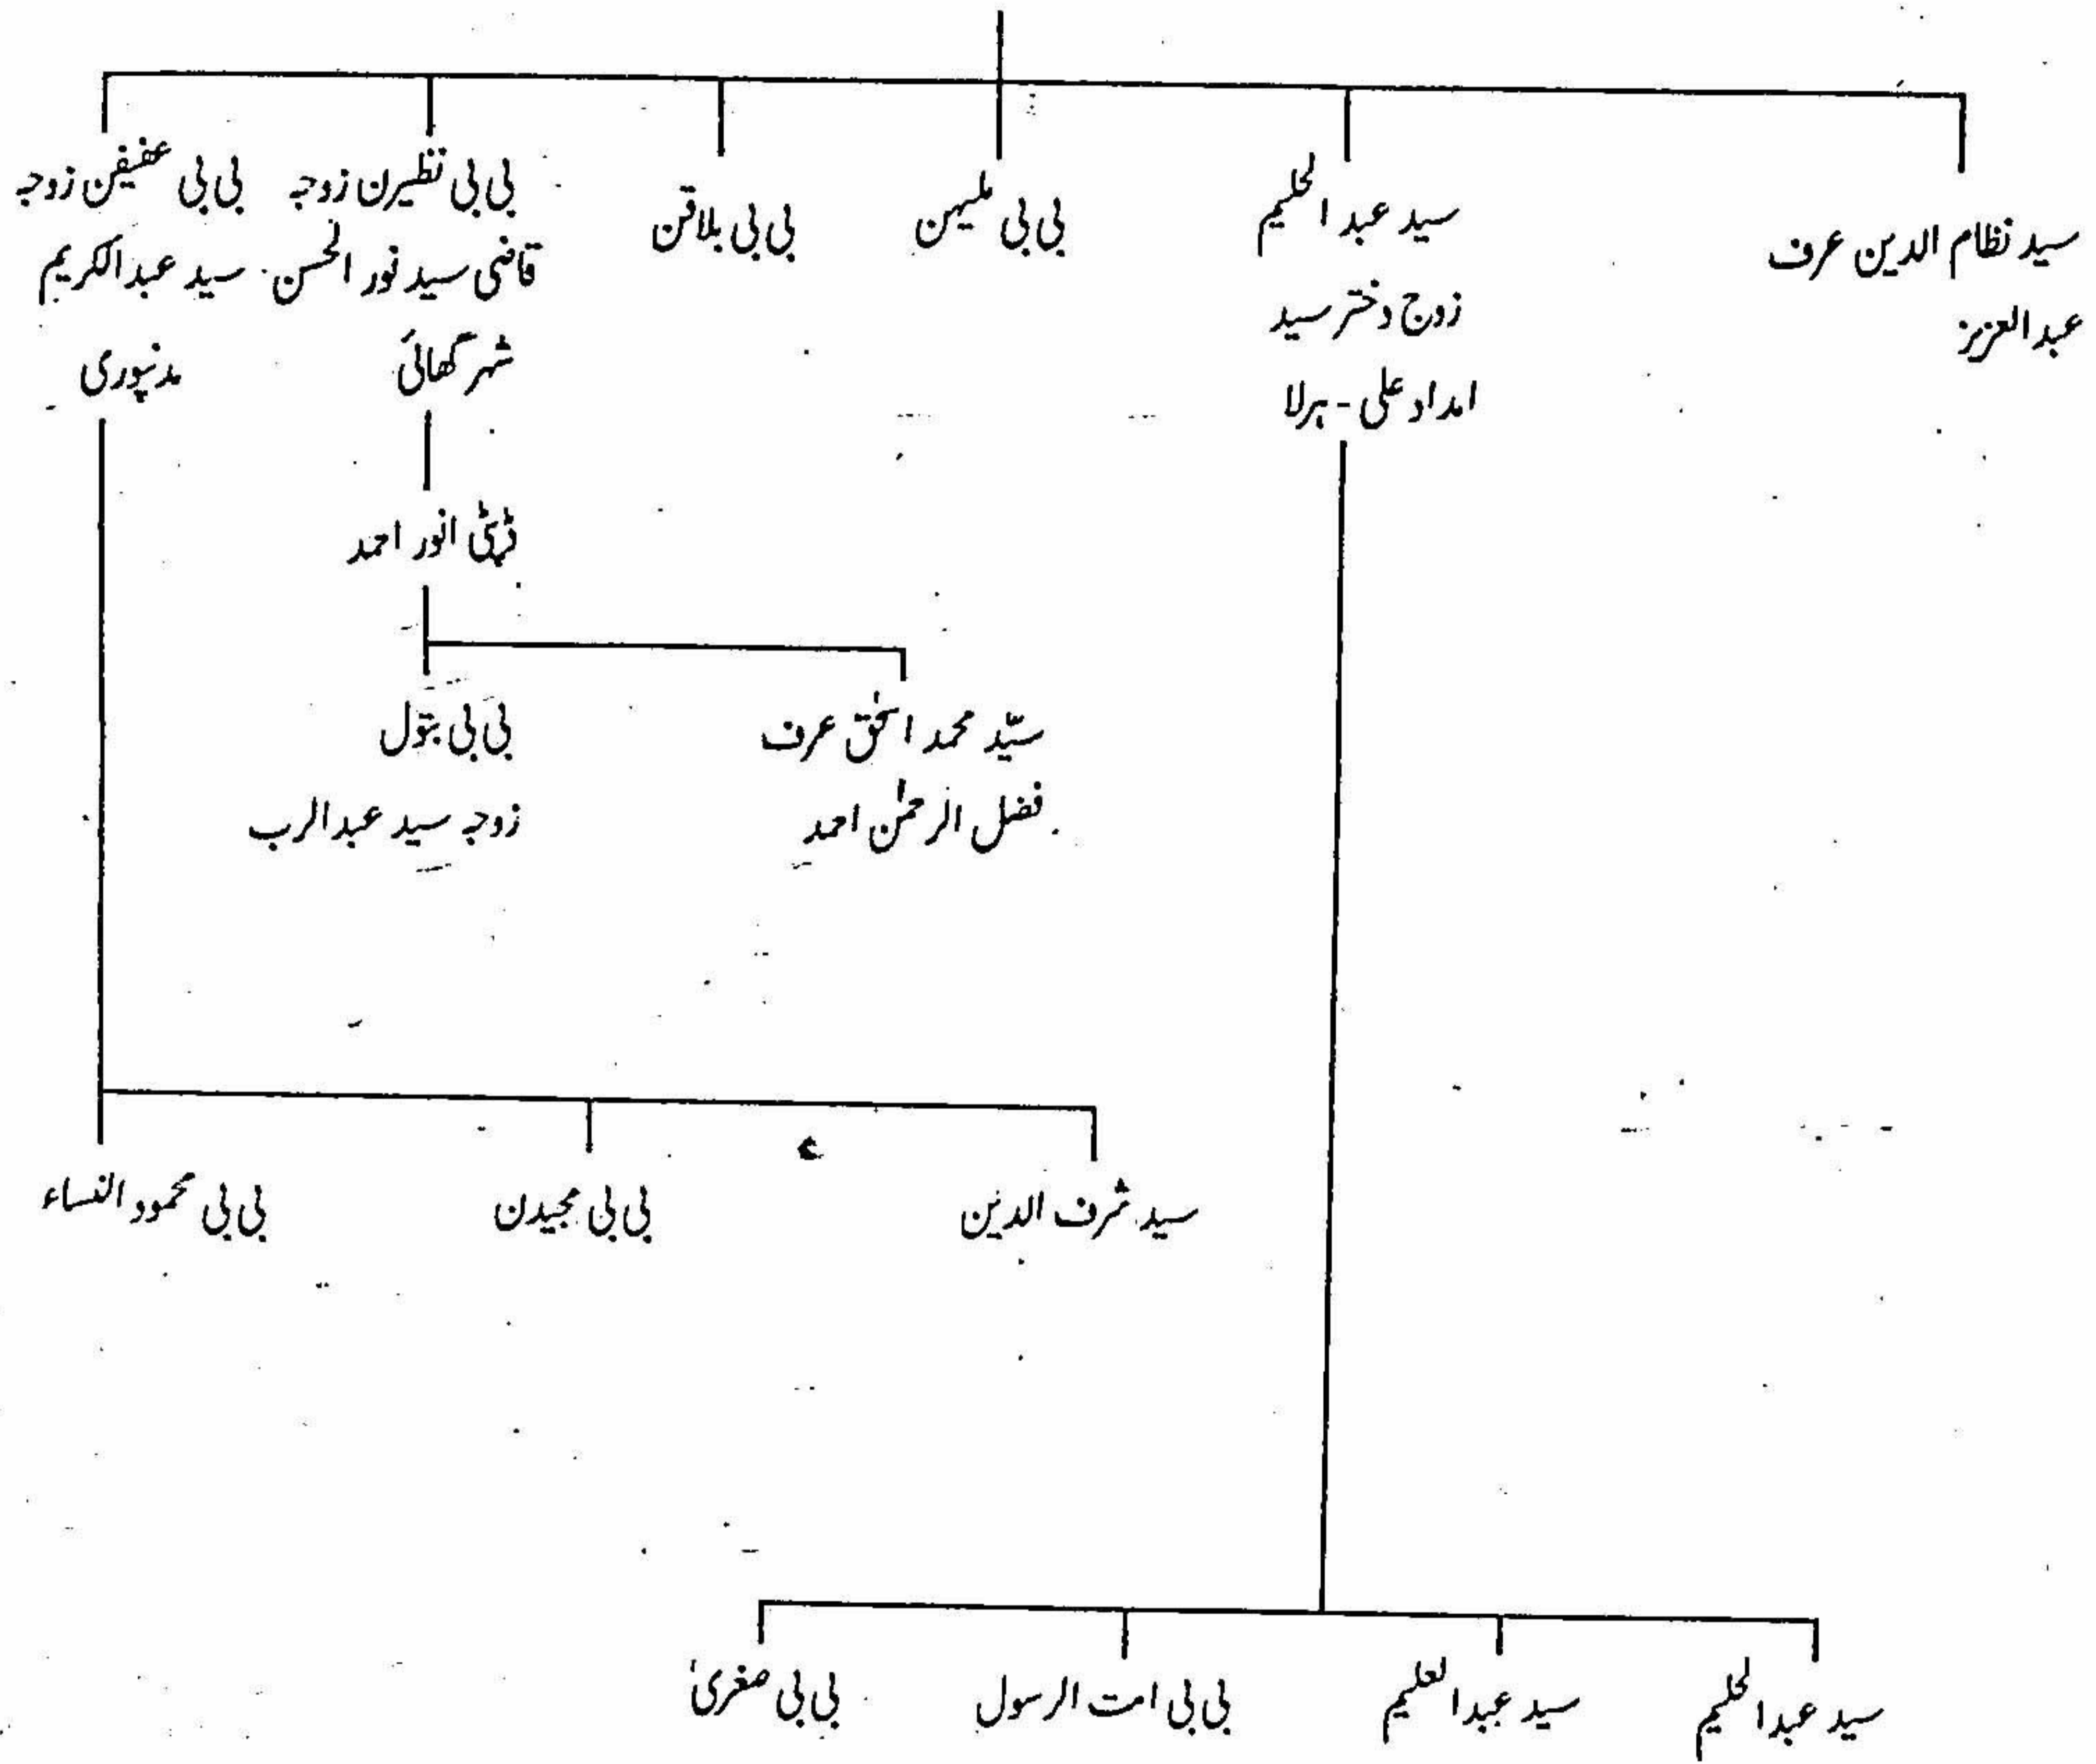 سید نظام الدین عرف
عبدالعزیز
سید عبدالحلیم
زوج دختر سید
امداد علی - ہرلا
بی بی ملیہن
بی بی بلاقن
بی بی نظیرن زوجہ
قاضی سید نور الحسن
شہر گھاٹی
بی بی عفیفن زوجہ
سید عبدالکریم
مدنپوری
ڈپٹی انور احمد
سیّد محمد اسحٰق عرف
فضل الرحمٰن احمد
بی بی بتول
زوجہ سید عبدالرب
سید شرف الدین
بی بی مجیدن
بی بی محمود النساء
سید عبدالحلیم
سید عبدالعلیم
بی بی امت الرسول
بی بی صغریٰ